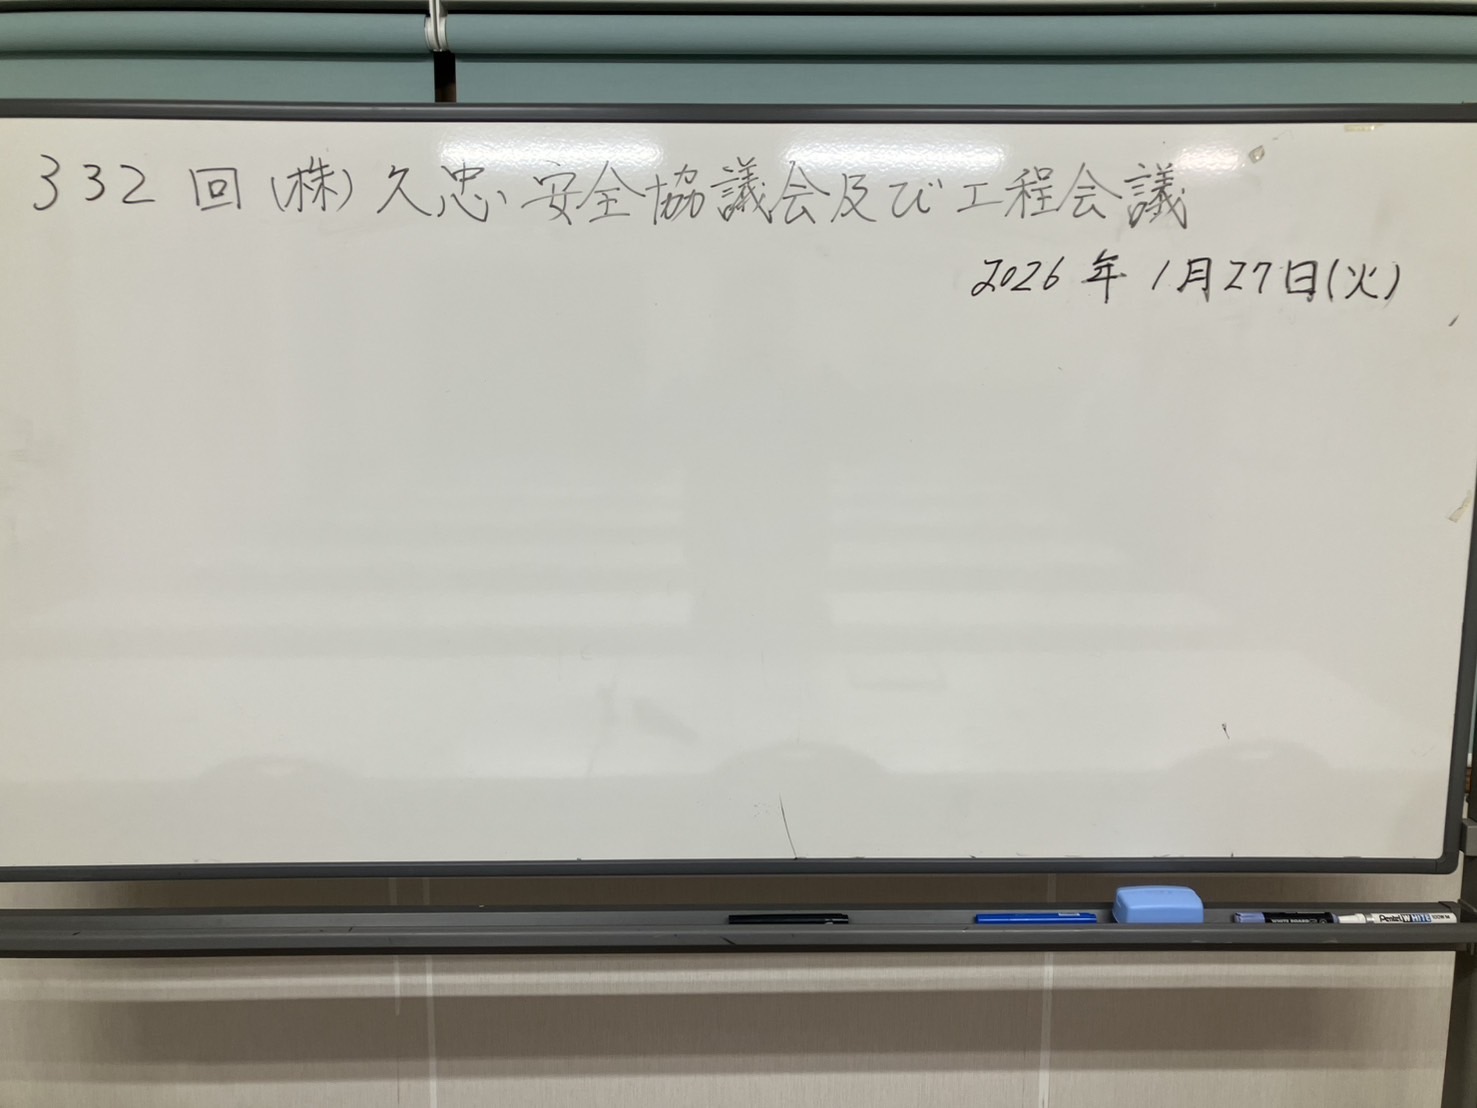 332回(株)久忠 安全協議会及び工程会議
2026年1月27日(火)
WHITE BOARD
Pentel WHITE 100W M